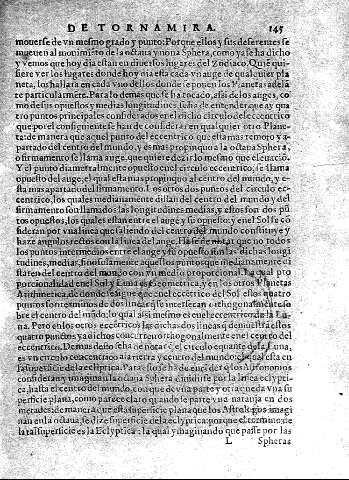 DE TORNAMIRA. 145
mouerse de vn mesmo grado y punto: Porque ellos y sus deferenses se
mueuen al mouimiento de la octaua y nona Sphera, como ya se ha dicho
y vemos que hoy dia estan en diuersos lugares del Zodiaco. Qui quisiere
ver los lugares donde hoy dia esta cada vn auge de qualquier planeta,
los hallara en cada vno dellos donde se ponen los Planetas
particularmente. Para lo demas que se ha tocado, assi de los auges, como
de sus opuestos y medias longitudines, se ha de entender que ay quatro
puntos principales considerados en el dicho circulo del eccentrico
que por el consiguiente se han de considerar en qualquier otro Planeta:
de manera que aquel punto del eccentrico que esta mas remoto y apartado
del centro del mundo, y es mas propinquo a la octaua Sphera,
o firmamento se llama auge, que quiere dezir lo mesmo que eleuacion.
Y el punto diametralmente opuesto en el circulo eccentrico, se llama
opuesto del auge, el qual esta mas propinquo al centro del mundo, y esta
mas apartado del firmamento. Los otros dos puntos del circulo eccentrico,
los quales medianamente distan del centro del mundo y del
firmamento son llamados las longitudines medias, y estos son dos puntos
opuestos, los quales estan entre el auge y su opuesto, y en el Sol se consideran
por vna linea que saliendo del centro del mundo constituye y
haze angulos rectos con la linea del auge. Hase de notar que no todos
los puntos intermedios entre el auge y su opuesto son las dichas longitudines
medias, sino solamente aquellos puntos que medianamente distan
del centro del mundo con vn medio proporcional. La qual proporcionalidad
en el Sol y Luna es Geometrica, y en los otros Planetas
Arithmetica, de donde se sigue que en el eccentrico del Sol ellos quatro
puntos son terminos de dos lineas que se intersecan
el centro del mundo, lo qual assi mesmo es en el eccentrico de la Luna.
Pero en los otros eccentricos las dichas dos lineas
quatro puntos
eccentricos. Demas desto se ha de notar, que el circulo equante de la Luna,
es vn circulo concentrico a la tierra y centro del mundo, el qual esta en
la superficie de la ecliptica. Para esto se ha de entender que los Astronomos
consideran y imaginan la octaua Sphera diuidirse por la linea ecliptica,
hasta el centro del mundo, con que de vna parte y otra queda vna superficie
plana, como parece claro quando se parte vna naranja en dos
metades: de manera que esta superficie plana que los Astrologos imaginan
en la octaua, se dize superficie de la ecliptica, porque el termino de
la tal superficie es la Ecliptica: la qual ymaginando que passe por las
L Spheras